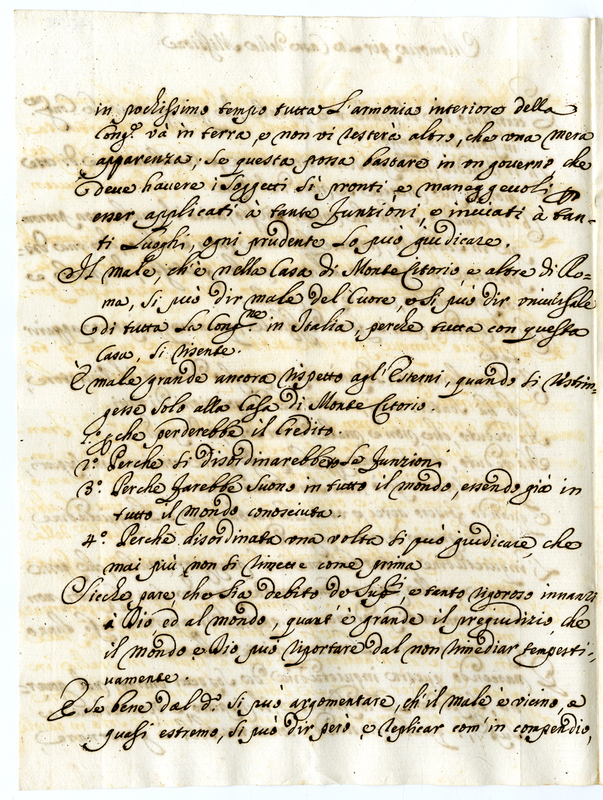 in pochissimo tempo tutta l'armonia interiore della
Cong.ne va in terra, e non vi resterà altro, che una mera
apparenza; se questa possa bastare in un governo che
deve havere i Soggetti sì pronti, e maneggevoli p
esser applicati à tante funzioni, e inviati à tan-
ti Luoghi, ogni prudente lo può giudicare.
Il male, ch'è nella Casa di Monte Citorio e altre di Ro-
ma, si può dir male del Cuore, o si può dir universale
di tutta la Cong.ne in Italia, perchè tutta con questa
Casa, si risente.
È male grande ancora rispetto agl'Esterni, quando si ristrin-
gesse solo alla Casa di Monte Citorio.
1.° p che perderebbe il Credito.
2.° Perche si disordinarebbero le funzioni
3.° Perche farebbe suono in tutto il mondo, essendo già in
tutto il mondo conosciuta.
4.° Perche disordinata una volta si può giudicare che
mai più non si rimette come prima
Sicche pare, che sia debito de Sup.ri e tanto rigoroso innanzi
à Dio ed al mondo, quant'è grande il pregiudizio che
il mondo e Dio può riportare dal non rimediar tempesti-
vamente.
E se bene dal d.° si può argomentare, ch'il male è vicino, e
quasi estremo, si può dir però, e replicar com'in compendio,